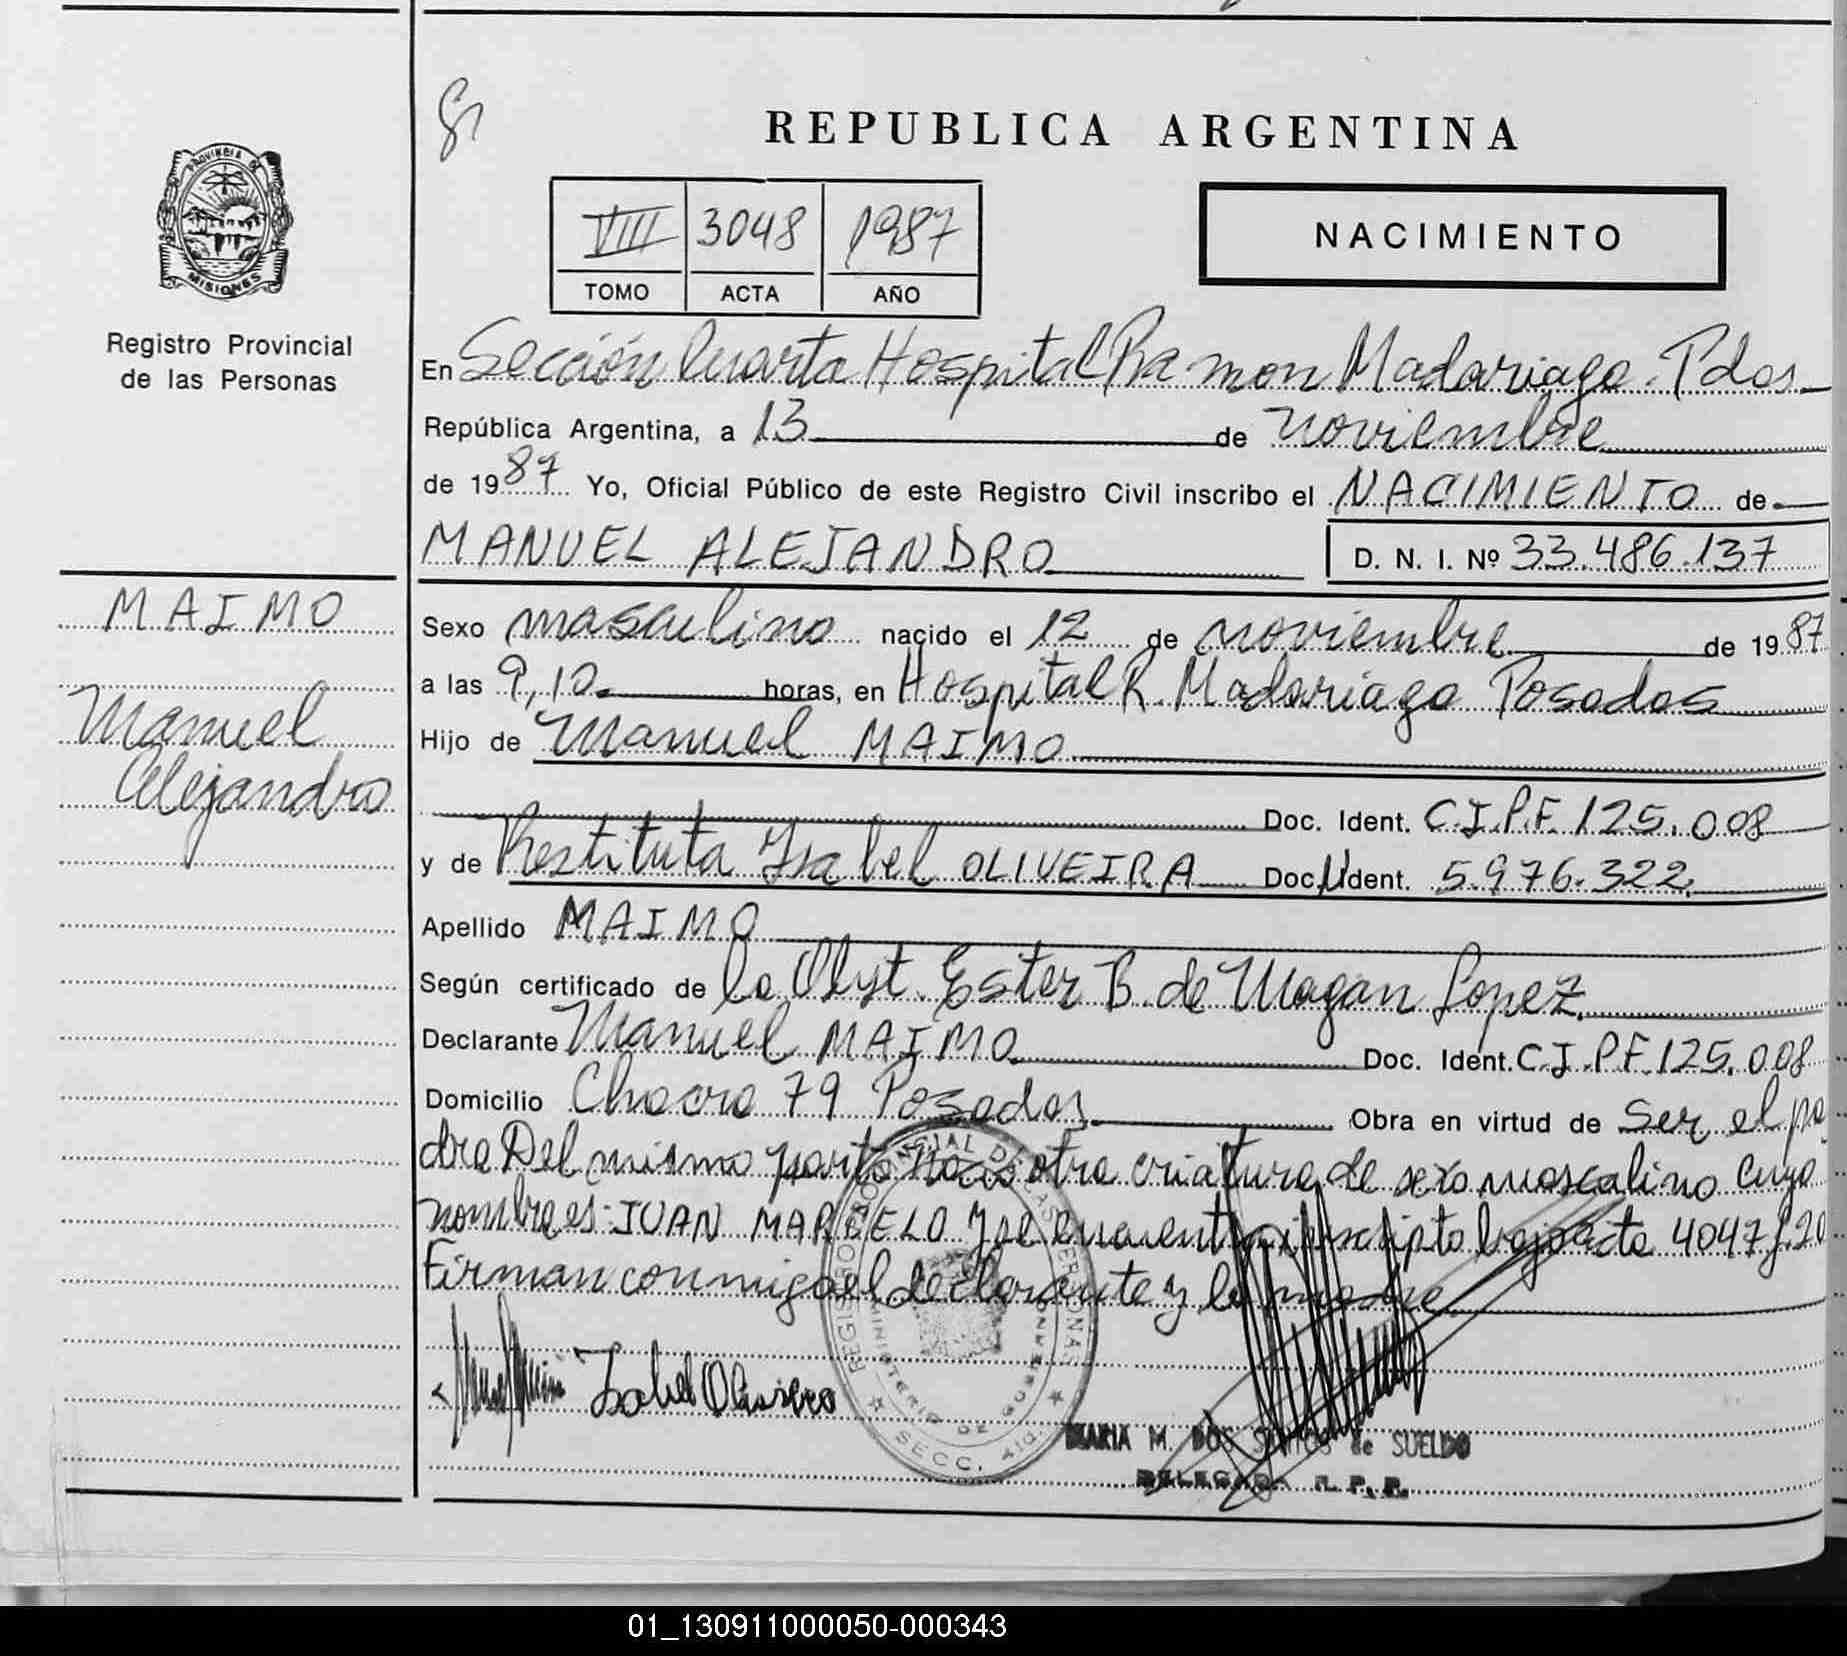 REPUBLICA ARGENTINA
PROVINCIA DE
MISIONES
Registro Provincial
de las Personas
VIII 3048 1987
TOMO ACTA AÑO
NACIMIENTO
En Sección Cuarta Hospital Ramon Madariaga. Pdas
República Argentina, a 13 de noviembre
de 1987 Yo, Oficial Público de este Registro Civil inscribo el NACIMIENTO de
MANUEL ALEJANDRO D. N. I. Nº 33.486.137
MAIMO
Manuel
Alejandro
Sexo masculino nacido el 12 de noviembre de 1987
a las 9,10. horas, en Hospital R. Madariaga Posadas
Hijo de Manuel MAIMO
Doc. Ident. C.I.P.F. 125.008
y de Restituta Isabel OLIVEIRA Doc. Ident. 5.976.322.
Apellido MAIMO
Según certificado de la Obst. Ester B. de Magan Lopez.
Declarante Manuel MAIMO Doc. Ident. C.I.P.F. 125.008
Domicilio Chacra 79 Posadas Obra en virtud de ser el pa
dre Del mismo parto nacio otra criatura de sexo masculino cuyo
nombre es: JUAN MARCELO y se encuentra inscripto bajo acta 4047 f.20
Firman conmigo el declarante y la madre
Isabel Oliveira
REGISTRO PROVINCIAL DE LAS PERSONAS
MINISTERIO DE GOBIERNO
SECC. 4ta.
MARIA M. DOS SANTOS de SUELDO
DELEGADA R. P. P.
01_130911000050-000343